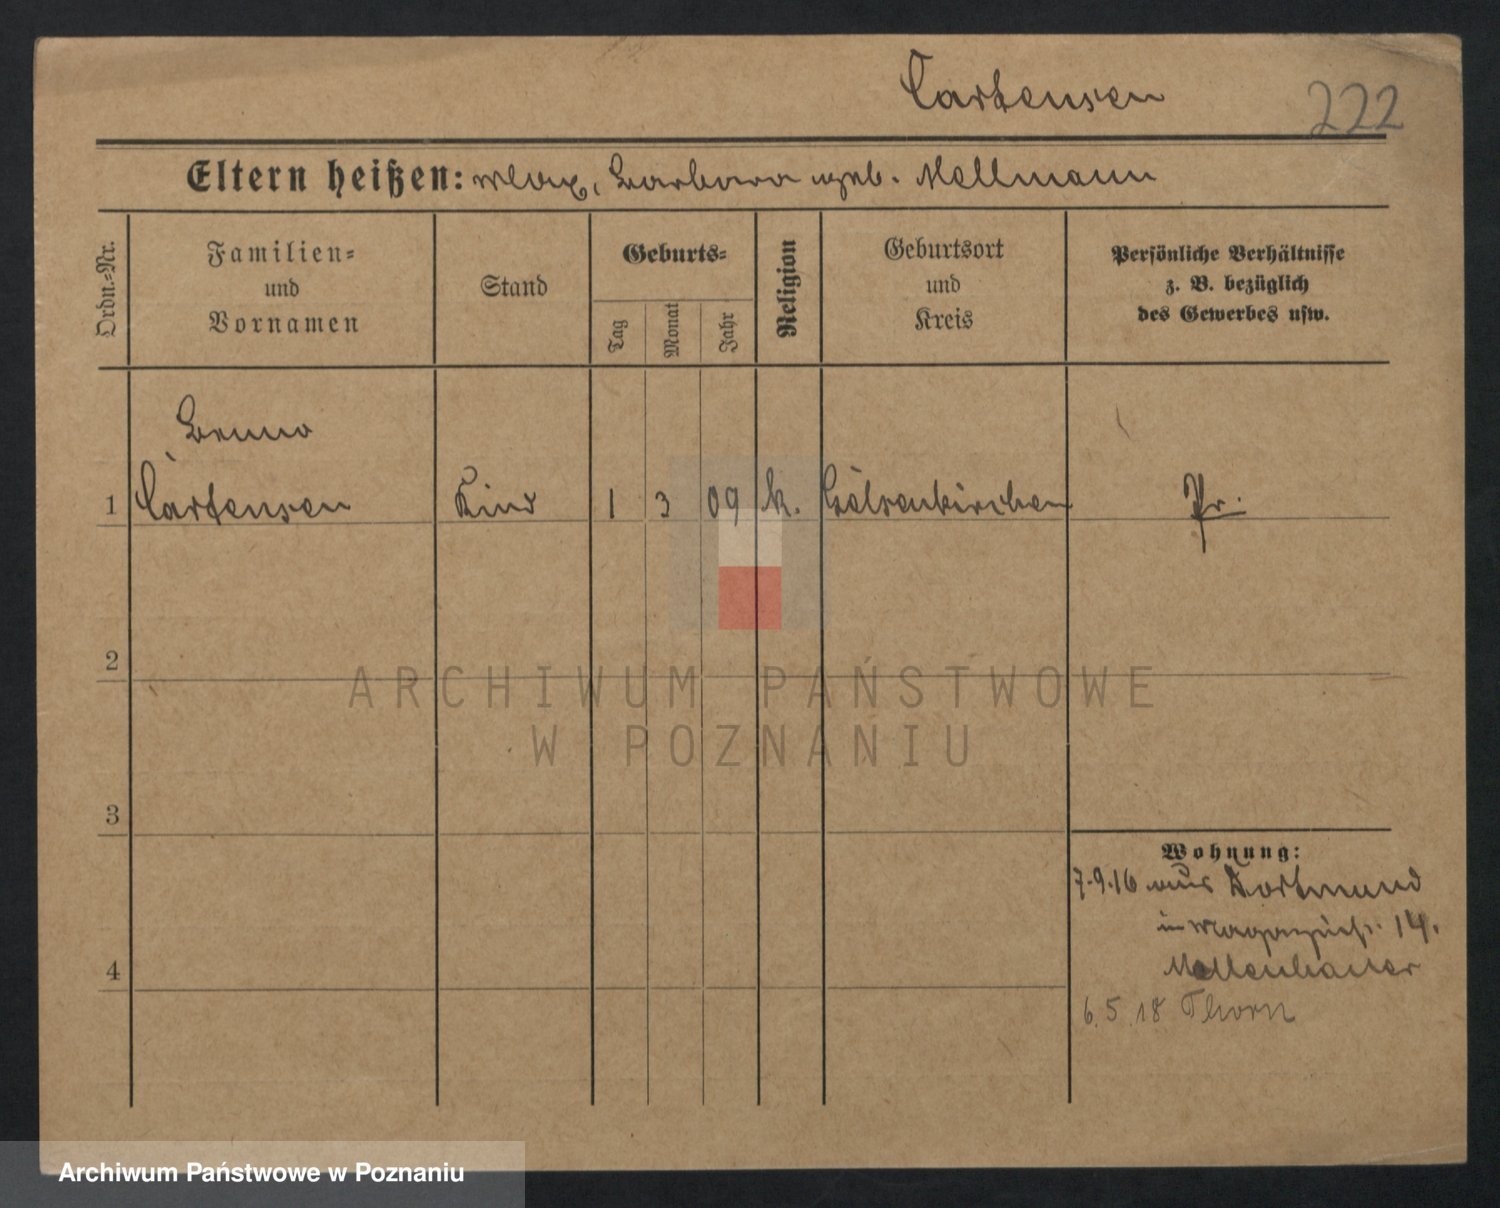 Cartensen
222
Eltern heißen: Max, Barbara geb. Mellmann
Ordn.=Nr.
Familien=
und
Vornamen
Stand
Geburts=
Tag
Monat
Jahr
Religion
Geburtsort
und
Kreis
Persönliche Verhältnisse
z. B. bezüglich
des Gewerbes usw.
Bruno
1 Cartensen Kind 1 3 09 k. Gelsenkirchen Pr.
2
3
4
Wohnung:
7.9.16 aus Dortmund
in 14.
Mellenhauer
6.5.18 Thorn
ARCHIWUM PAŃSTWOWE
W POZNANIU
Archiwum Państwowe w Poznaniu